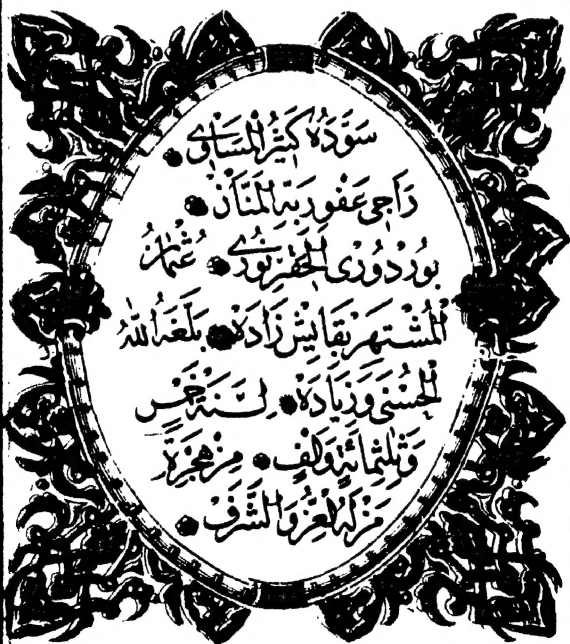 سَوَّدَهُ كَثِيرُ الْمَسَاوِي
رَاجِي عَفْوِ رَبِّهِ الْمَنَّانْ
بُورْدُورِی الْحَقِيرْ نُورِي عُثْمَانْ
الْمُشْتَهَرْ بِقَايِشْ زَادَهْ بَلَّغَهُ اللّٰهُ
الْحُسْنَى وَزِيَادَهْ لِسَنَةِ خَمْسٍ
وَثَلٰثِمِائَةٍ وَاَلْفٍ مِنْ هِجْرَةِ
مَنْ لَهُ الْعِزُّ وَالشَّرَفْ